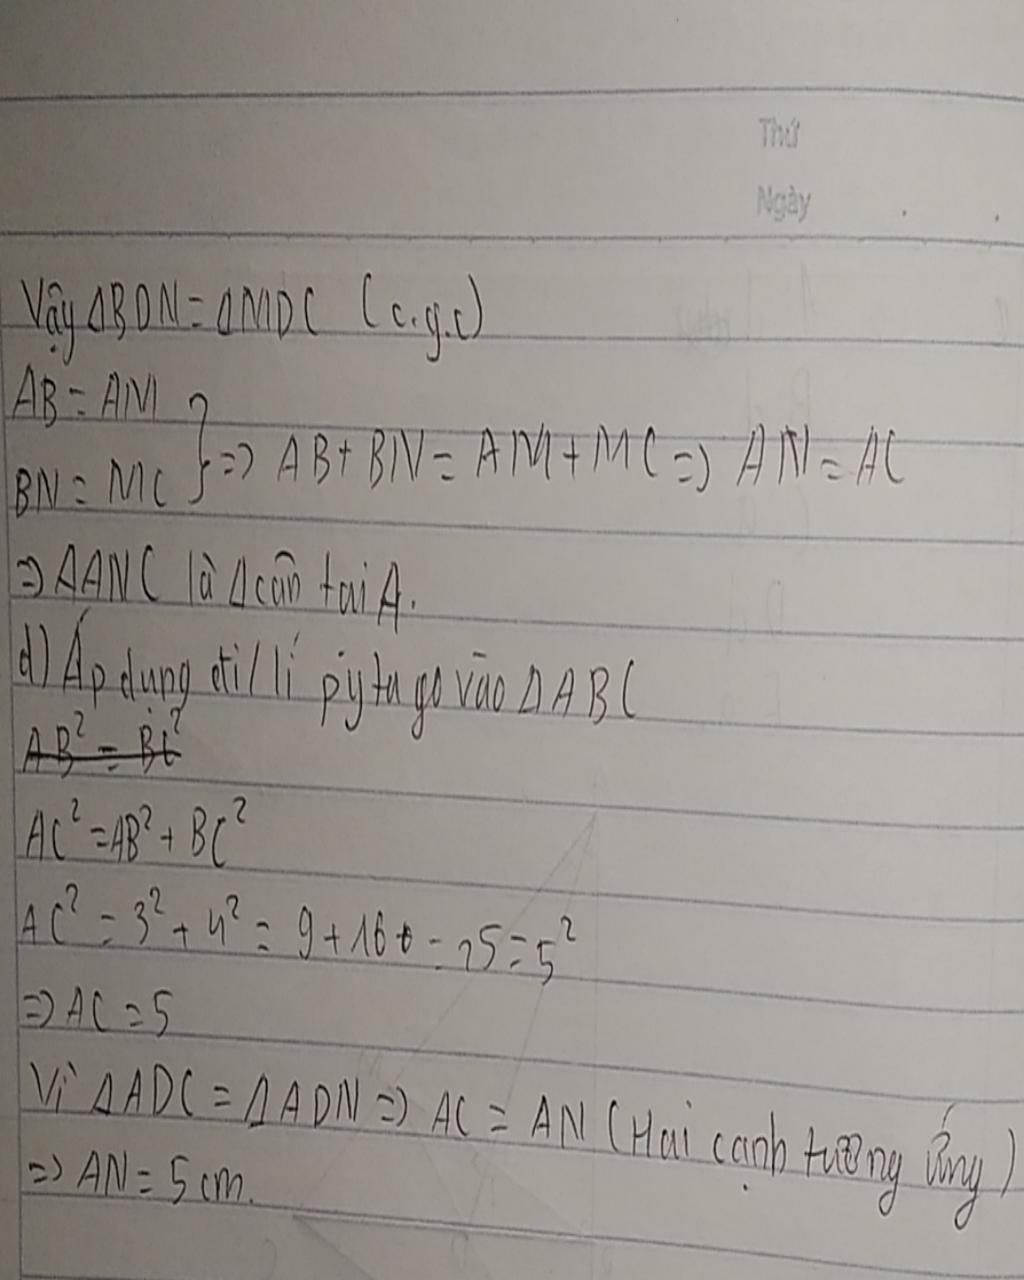 Thứ
Ngày
Vậy ΔBDN = ΔMDC (c.g.c)
AB = AM
BN = MC } => AB + BN = AM + MC => AN = AC
=> ΔANC là Δ cân tại A.
d) Áp dụng đi/lí pytago vào ΔABC
AB² = BC²
AC² = AB² + BC²
AC² = 3² + 4² = 9 + 16 = 25 = 5²
=> AC = 5
Vì ΔADC = ΔADN => AC = AN (Hai cạnh tương ứng)
=> AN = 5 cm.